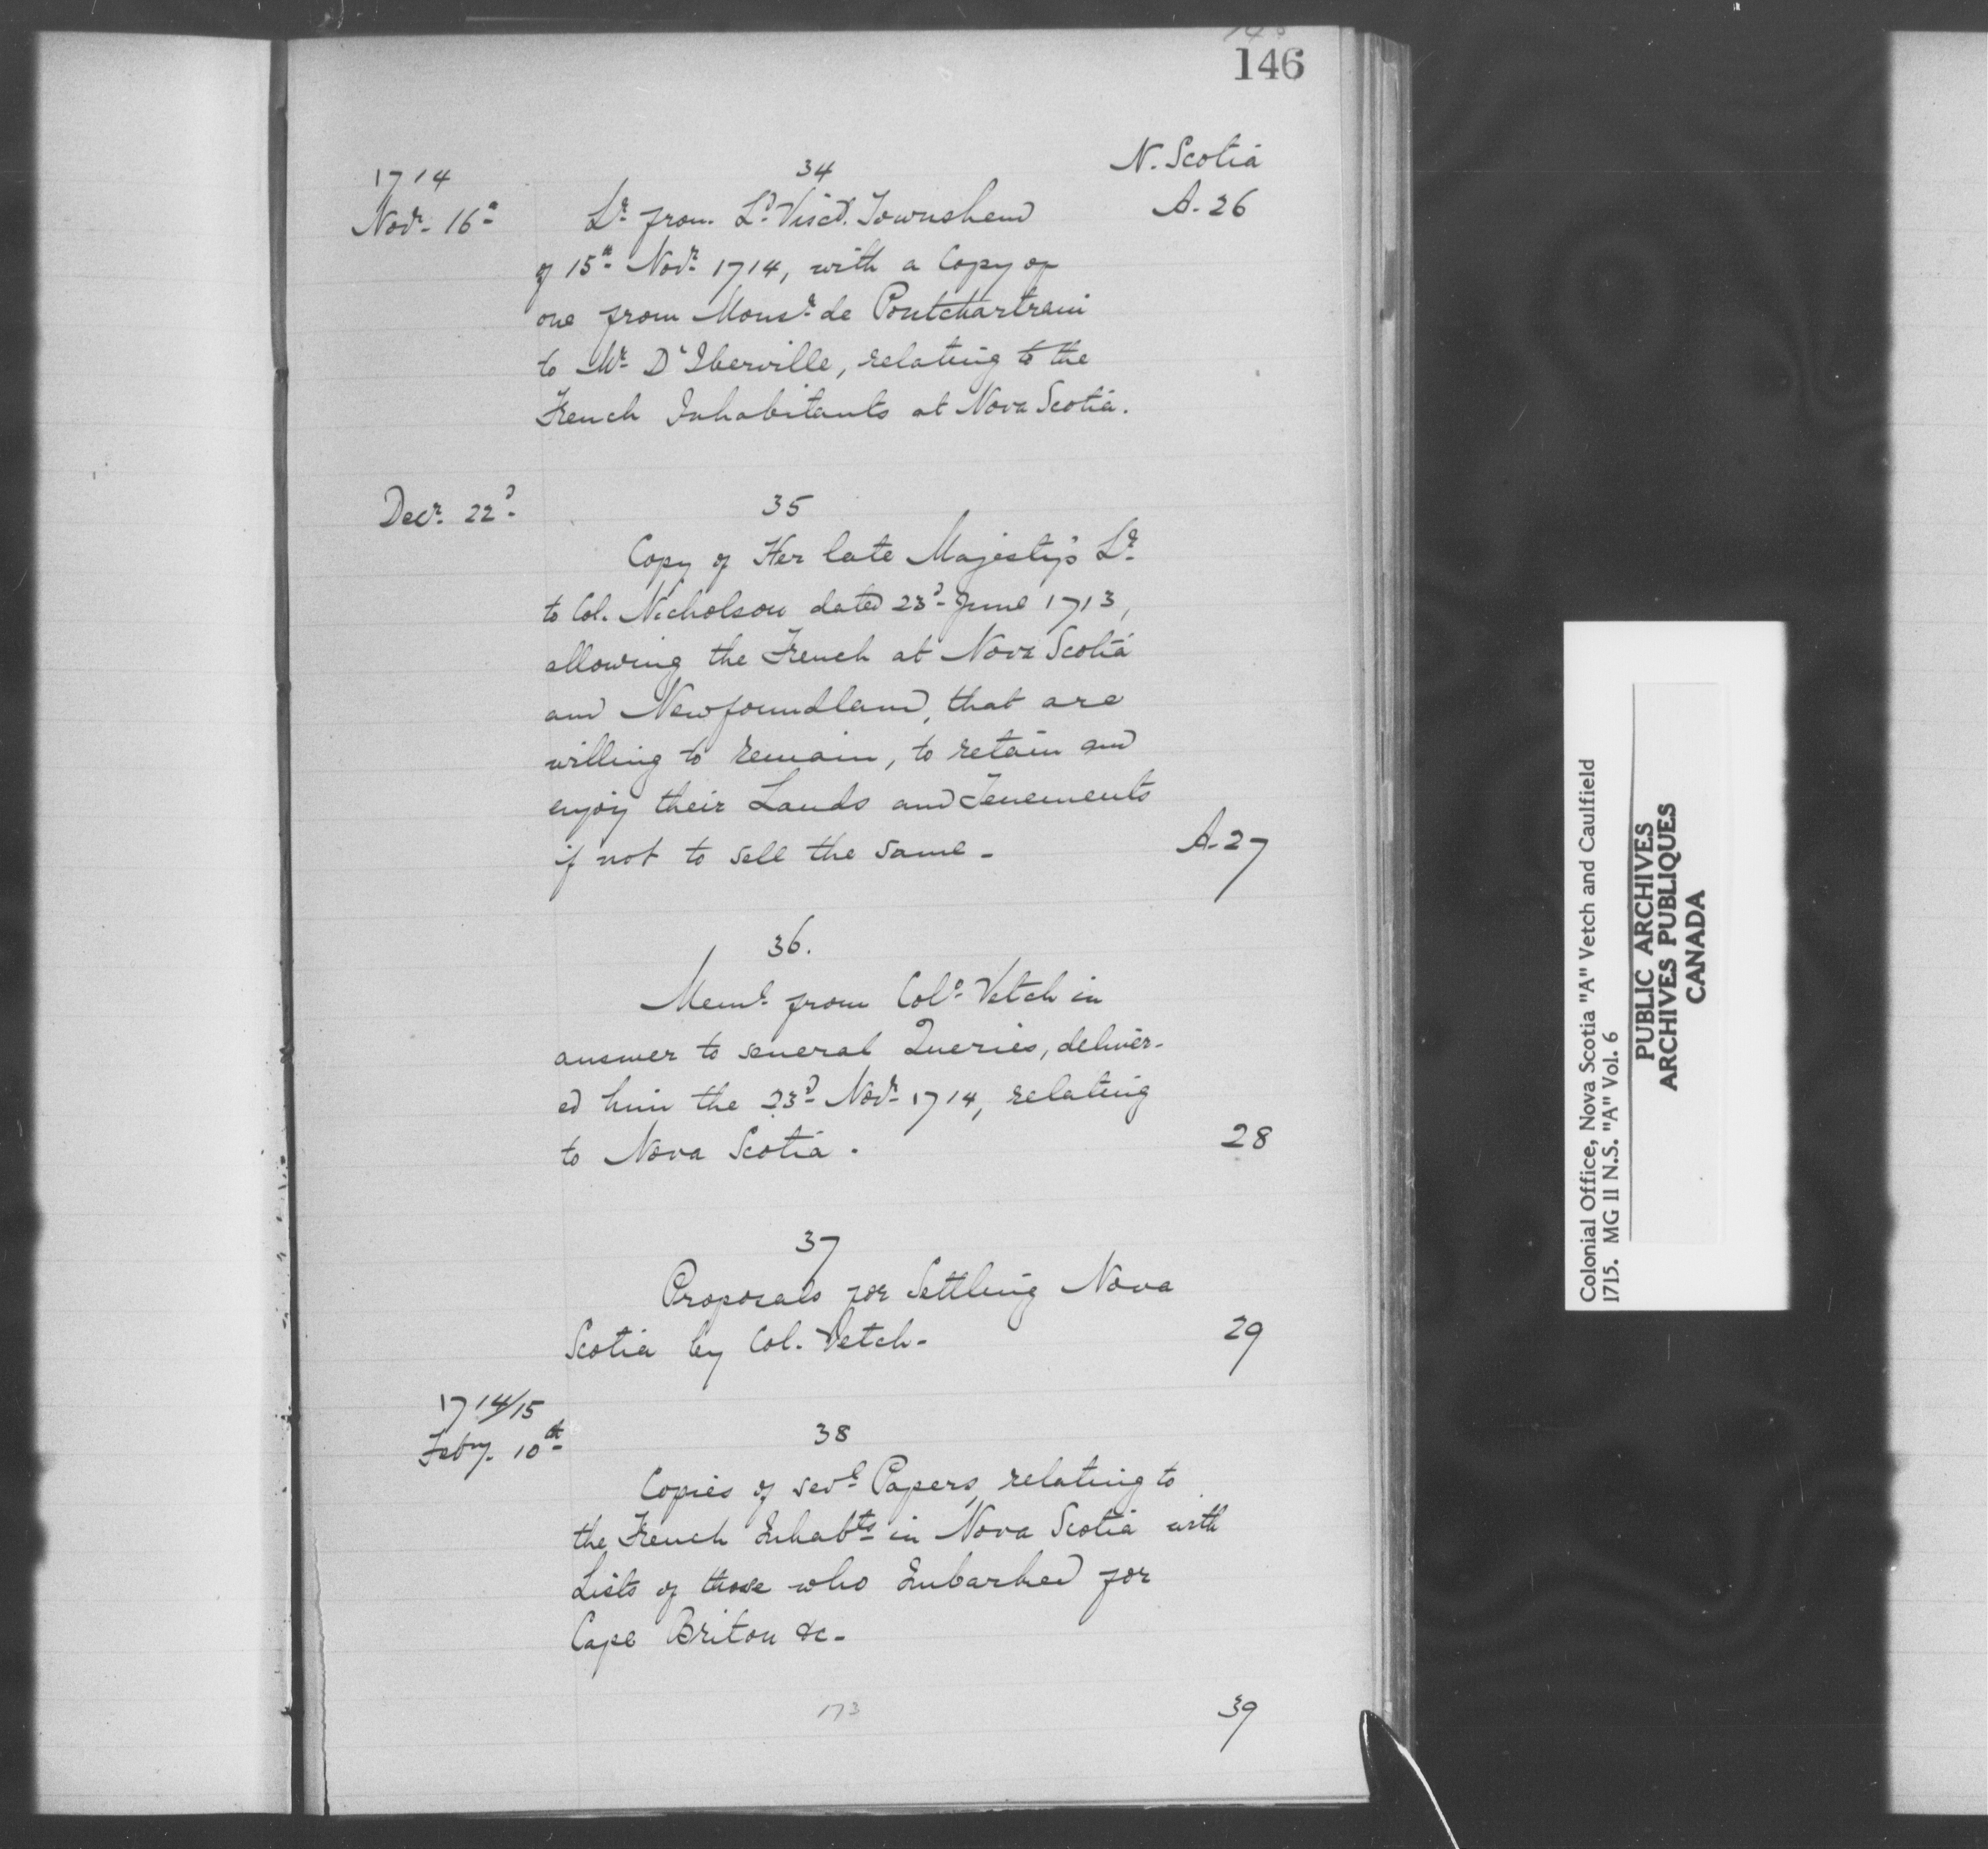 146
N. Scotia
1714
34
Novr. 16th
Lr. from Ld. Visct. Townshend
A. 26
of 15th Novr. 1714, with a Copy of
one from Monsr. de Pontchartrain
to Mr. D'Iberville, relating to the
French Inhabitants at Nova Scotia.
Decr. 22d.
35
Copy of Her late Majesty's Lr.
to Col. Nicholson dated 23d. June 1713,
allowing the French at Nova Scotia
and Newfoundland, that are
willing to remain, to retain and
enjoy their Lands and Tenements
if not to sell the same -
A. 27
36.
Meml. from Colo. Vetch in
answer to several Queries, deliver-
ed him the 23d. Novr. 1714, relating
to Nova Scotia.
28
37
Proposals for Settling Nova
Scotia by Col. Vetch -
29
1714/15
Feby. 10th
38
Copies of sevl. Papers, relating to
the French Inhabts in Nova Scotia with
Lists of those who Imbarked for
Cape Briton &c -
173
39
Colonial Office, Nova Scotia "A" Vetch and Caulfield
1715. MG 11 N.S. "A" Vol. 6
PUBLIC ARCHIVES
ARCHIVES PUBLIQUES
CANADA